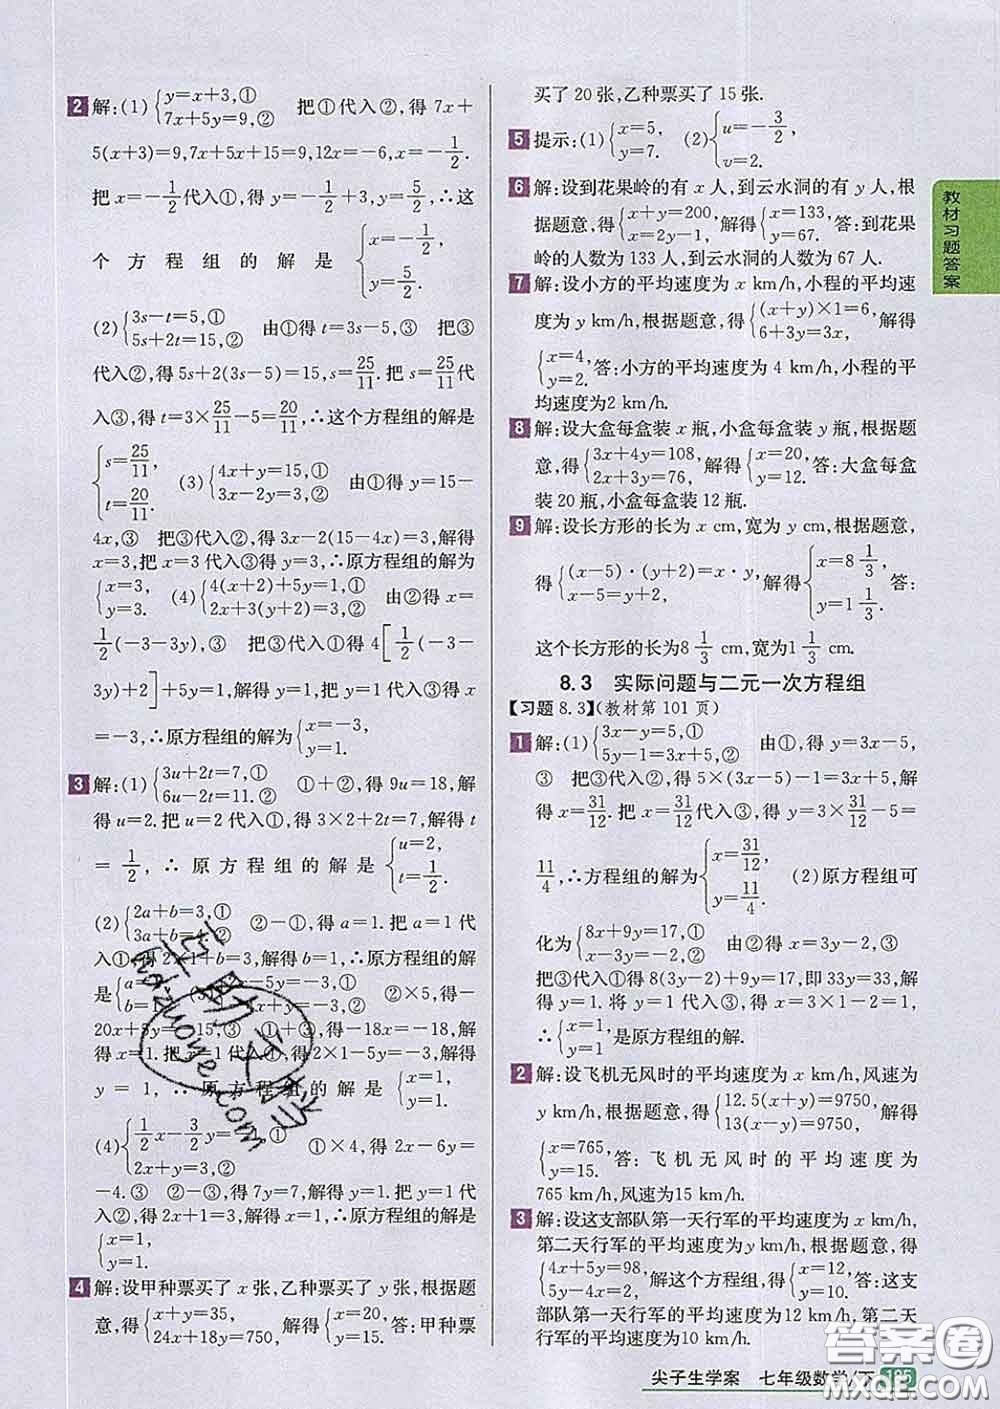 2 解:(1){y=x+3,① 7x+5y=9,② 把①代入②,得 7x+
5(x+3)=9,7x+5x+15=9,12x=-6,x=-1/2.
把 x=-1/2代入①,得 y=-1/2+3,y=5/2,∴这
个方程组的解是{x=-1/2, y=5/2;
(2){3s-t=5,① 5s+2t=15,② 由①得 t=3s-5,③ 把③
代入②,得 5s+2(3s-5)=15,s=25/11.把 s=25/11代
入③,得 t=3×25/11-5=20/11,∴这个方程组的解是
{s=25/11, t=20/11; (3){4x+y=15,① 3x-2y=3,② 由①得 y=15-
4x,③ 把③代入②,得 3x-2(15-4x)=3,解得
x=3,把 x=3代入③得 y=3,∴原方程组的解为
{x=3, y=3. (4){4(x+2)+5y=1,① 2x+3(y+2)=3,② 由②得 x=
1/2(-3-3y),③ 把③代入①得 4[1/2(-3-
3y)+2]+5y=1,解得 y=1,把 y=1 代入③,得 x
=-3,∴原方程组的解为{x=-3, y=1.
3 解:(1){3u+2t=7,① 6u-2t=11.② ①+②,得 9u=18,解
得 u=2.把 u=2 代入①,得 3×2+2t=7,解得 t
=1/2,∴原方程组的解是{u=2, t=1/2.
(2){2a+b=3,① 3a+b=4,② ②-①,得 a=1.把 a=1 代
入①,得 2×1+b=3,解得 b=1,∴原方程组的解
是{a=1, b=1. -5y=-3,① ②×5,得-
20x+5y=-15,③ ①+③,得-18x=-18,解
得 x=1.把 x=1 代入①,得 2×1-5y=-3,
y=1,∴原方程组的解是{x=1, y=1.
(4){1/2x-3/2y=-1,① 2x+y=3,② ①×4,得 2x-6y=
-4.③ ②-③,得 7y=7,解得 y=1.把 y=1 代入
②,得 2x+1=3,解得 x=1.∴原方程组的解是
{x=1, y=1.
4 解:设甲种票买了 x 张,乙种票买了 y 张,根据题
意,得{x+y=35, 24x+18y=750, 解得{x=20, y=15. 答:甲种票
买了 20 张,乙种票买了 15 张.
5 提示:(1){x=5, y=7. (2){u=-3/2, v=2.
6 解:设到花果岭的有 x 人,到云水洞的有 y 人,根
据题意,得{x+y=200, x=2y-1, 解得{x=133, y=67. 答:到花果
岭的人数为 133 人,到云水洞的人数为 67 人.
7 解:设小方的平均速度为 x km/h,小程的平均速
度为 y km/h,根据题意,得{(x+y)×1=6, 6+3y=3x, 解得
{x=4, y=2. 答:小方的平均速度为 4 km/h,小程的平
均速度为2 km/h.
8 解:设大盒每盒装 x 瓶,小盒每盒装 y 瓶,根据题
意,得{3x+4y=108, 2x+3y=76, 解得{x=20, y=12. 答:大盒每盒
装 20 瓶,小盒每盒装 12 瓶.
9 解:设长方形的长为 x cm,宽为 y cm,根据题意,
得{(x-5)·(y+2)=x·y, x-5=y+2, 解得{x=8 1/3, y=1 1/3. 答:
这个长方形的长为8 1/3 cm,宽为1 1/3 cm.
8.3 实际问题与二元一次方程组
【习题 8.3】(教材第 101 页)
1 解:(1){3x-y=5,① 5y-1=3x+5,② 由①,得 y=3x-5,
③ 把③代入②,得 5×(3x-5)-1=3x+5,解
得 x=31/12.把 x=31/12代入③,得 y=3×31/12-5=
11/4,∴方程组的解为{x=31/12, y=11/4. (2)原方程组可
化为{8x+9y=17,① x-3y=-2.② 由②得 x=3y-2,③
把③代入①得 8(3y-2)+9y=17,即 33y=33,解
得 y=1.将 y=1 代入③,得 x=3×1-2=1,
∴{x=1, y=1 是原方程组的解.
2 解:设飞机无风时的平均速度为 x km/h,风速为
y km/h,根据题意,得{12.5(x+y)=9750, 13(x-y)=9750, 解得
{x=765, y=15. 答:飞机无风时的平均速度为
765 km/h,风速为15 km/h.
3 解:设这支部队第一天行军的平均速度为 x km/h,
第二天行军的平均速度为y km/h,根据题意,得
{4x+5y=98, 5y=4x+2, 解这个方程组,得{x=12, y=10. 答:这支
部队第一天行军的平均速度为12 km/h,第二天
行军的平均速度为10 km/h.
教材习题答案
尖子生学案 七年级数学/下 195
答案圈